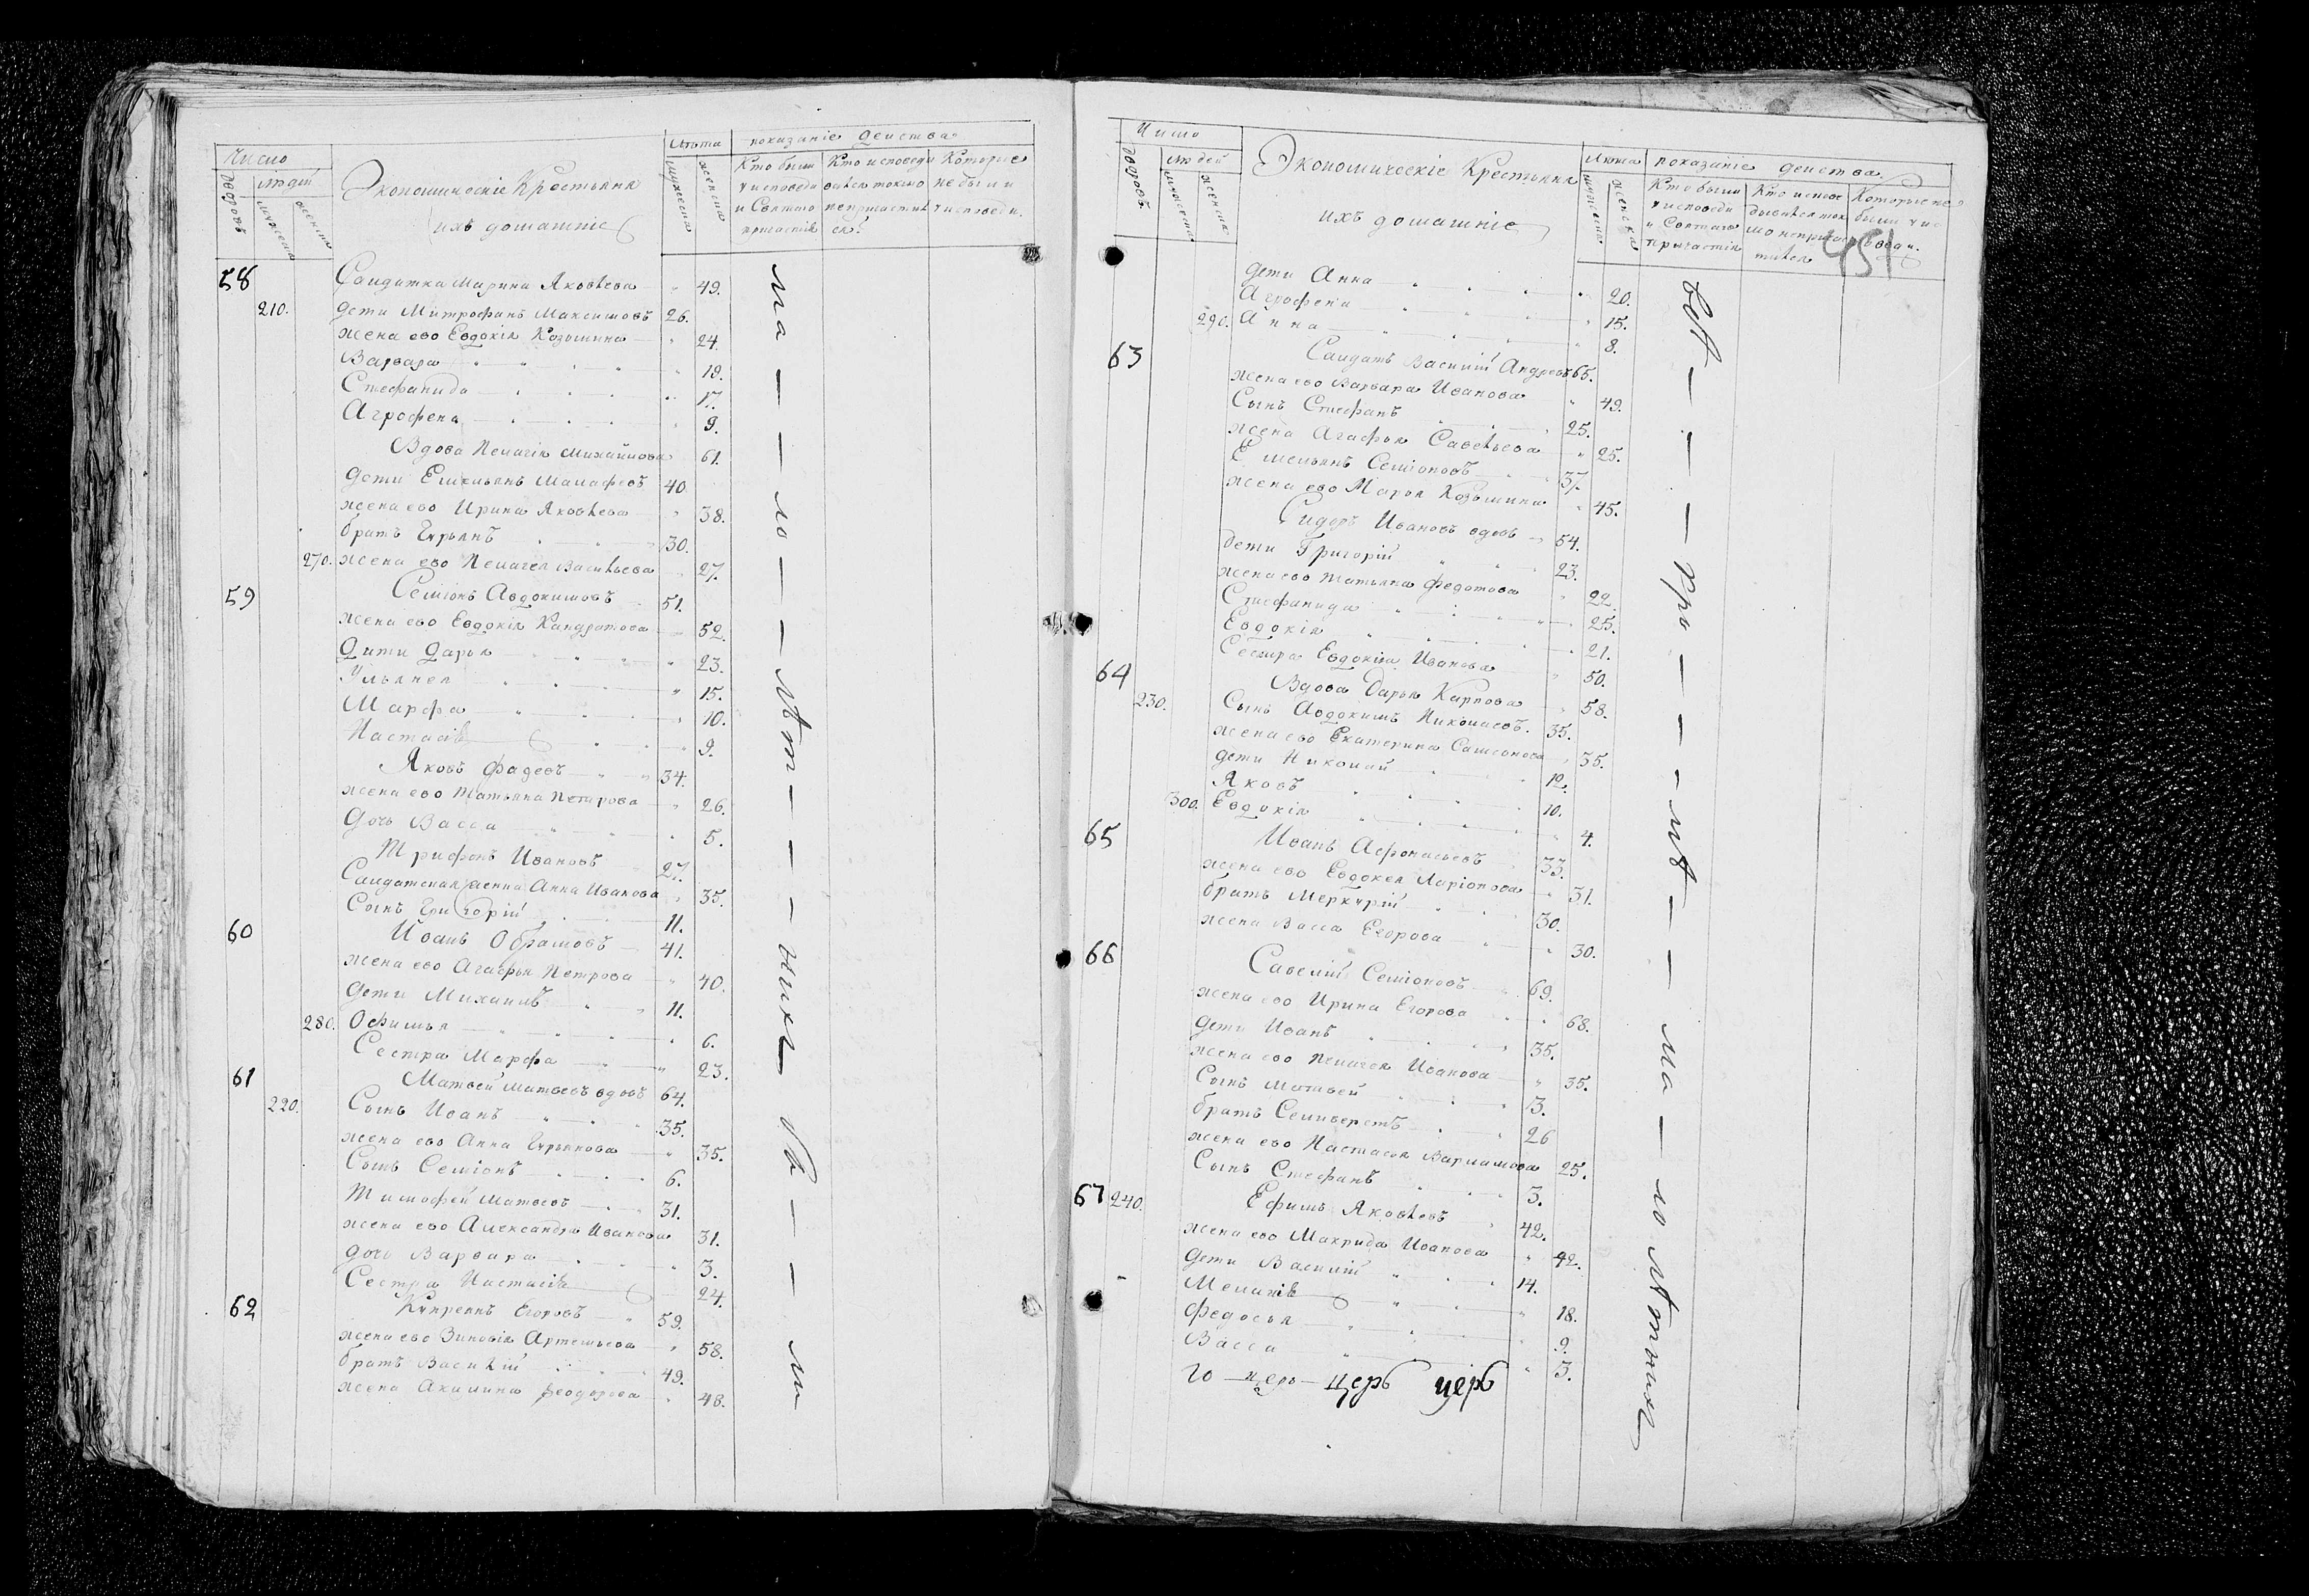 Число
людей
дворовъ
мужеска
женска
Экономическіе Крестьяна
ихъ домашніе
Лѣта
мужеска
женска
показаніе действа
Кто были
у исповеди
и Святаго
причастія
Кто исповеди
вался токмо
не причастил
ся.
Которые
не были
у исповеди.
58 Салдатка Марина Яковлева 49.
210. дети Митрофанъ Максимовъ 26.
жена ево Евдокія Козьмина 24.
Варвара 19.
Стефанида 17.
Агрофена 9.
Вдова Пелагія Михайлова 61.
дети Емельянъ Малафеевъ 40.
жена ево Ирина Яковлева 38.
братъ Гурьянъ 30.
270. жена ево Пелагея Васильева 27.
59 Семіонъ Авдокимовъ 51.
жена ево Евдокія Кандратова 52.
Дити Дарья 23.
Ульянея 15.
Марфа 10.
Настасія 9.
Яковъ Фадеевъ 34.
жена ево Татьяна Петрова 26.
дочь Васса 5.
Трифонъ Ивановъ 27.
Салдатская жена Анна Иванова 35.
Сынъ Григорій 11.
60 Иванъ Обрамовъ 41.
жена ево Агафья Петрова 40.
дети Михаилъ 11.
280. Офимья 6.
Сестра Марфа 23.
61 Матвей Матвеевъ вдовъ 64.
220. Сынъ Иванъ 35.
жена ево Анна Гурьянова 35.
Сынъ Семіонъ 6.
Тимофей Матвеевъ 31.
жена ево Александра Иванова 31.
дочь Варвара 3.
Сестра Настасія 24.
62 Купреянъ Егоровъ 59.
жена ево Зиновія Артемьева 58.
братъ Василій 49.
жена Акилина Феодорова 48.
ма — ло — лѣт — никл
Число
дворовъ
людей
мужеска
женска
Экономическіе Крестьяна
ихъ домашніе
Лѣта
мужеска
женска
показаніе действа
Кто были
у исповеди
и Святаго
причастія
Кто испове
дывался ток
мо не причас
тился
Которые не
были у ис
поведи.
451
дети Анна 20.
Агрофена 15.
290. Анна 8.
63 Салдатъ Василій Андреевъ 65.
жена ево Варвара Иванова 49.
Сынъ Стефанъ 25.
жена Агафья Савельева 25.
Емельянъ Семіоновъ 37.
жена ево Марья Козьмина 45.
Сидоръ Ивановъ вдовъ 54.
дети Григорій 23.
жена ево Татьяна Федотова 22.
Стефанида 25.
Евдокія 21.
Сестра Евдокія Иванова 50.
64 Вдова Дарья Карпова 58.
230. Сынъ Авдокимъ Николаевъ. 35.
жена ево Екатерина Самсонова 35.
дети Николай 12.
Яковъ 10.
300. Евдокія 4.
65 Иванъ Афонасьевъ 33.
жена ево Евдокея Ларіонова 31.
братъ Меркурій 30.
жена Васса Егорова 30.
66 Савелій Семіоновъ 69.
жена ево Ирина Егорова 68.
дети Иванъ 35.
жена ево Пелагея Иванова 35.
Сынъ Матвей 3.
братъ Селиверстъ 26
жена ево Настасья Варламова 25.
Сынъ Стефанъ 3.
67 240. Ефимъ Яковлевъ 42.
жена ево Макрида Иванова 42.
дети Василій 14.
Меланія 18.
Федосья 9.
Васса 3.
церь церь
ма — ло лѣтныхъ